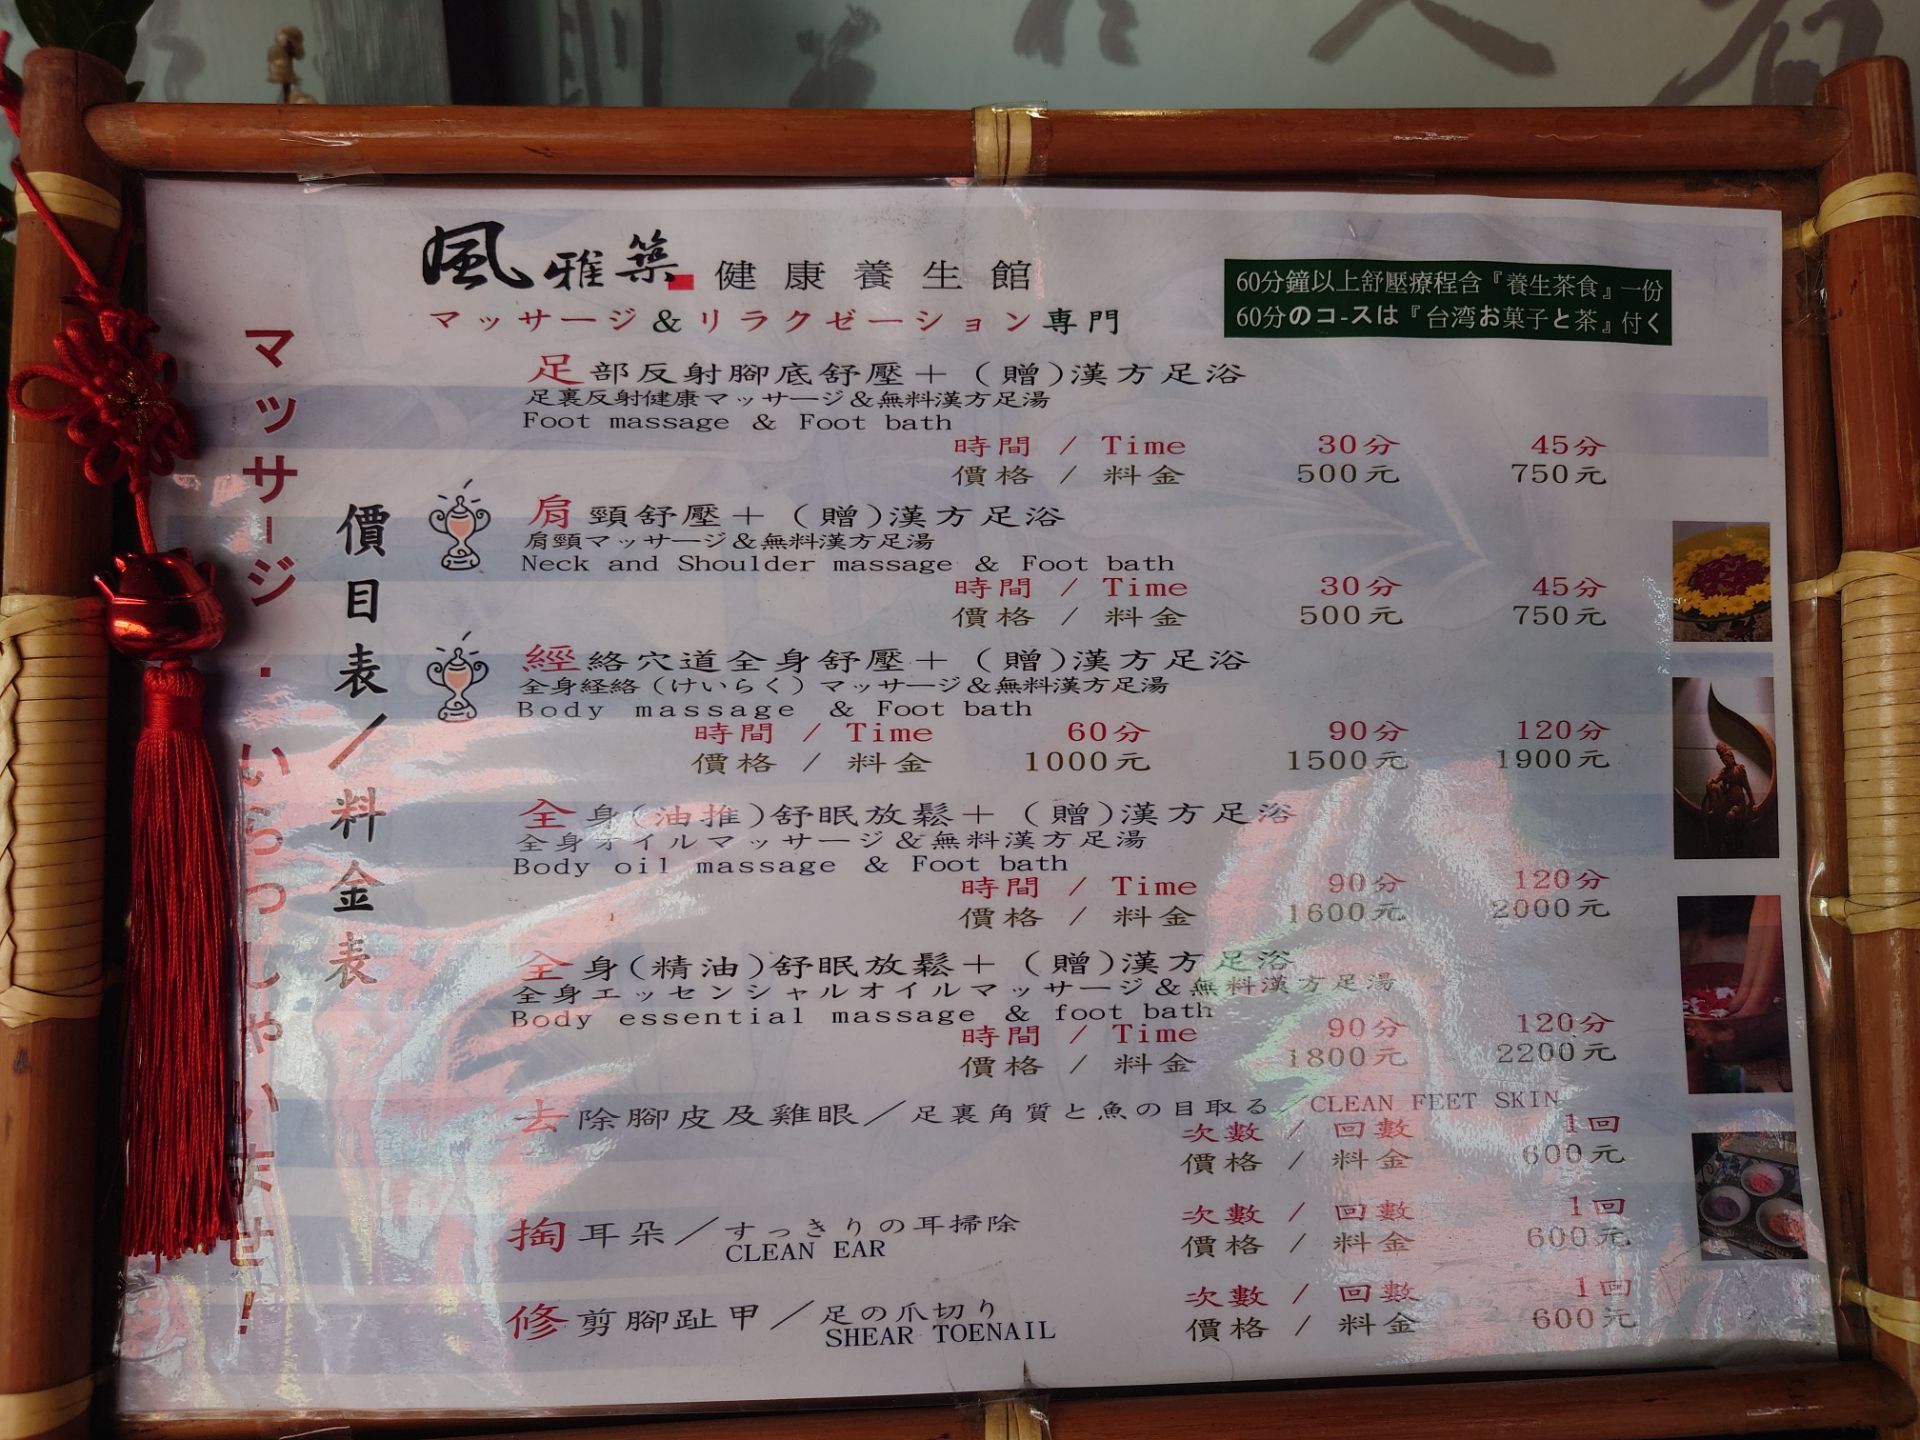 風雅築 健康養生館
マッサージ&リラクゼーション専門
60分鐘以上舒壓療程含『養生茶食』一份
60分のコ-スは『台湾お菓子と茶』付く
マッサージ・いらっしゃいませ!
價目表/料金表
足部反射腳底舒壓＋(贈)漢方足浴
足裏反射健康マッサージ&無料漢方足湯
Foot massage & Foot bath
時間 / Time 30分 45分
價格 / 料金 500元 750元
肩頸舒壓＋(贈)漢方足浴
肩頸マッサージ&無料漢方足湯
Neck and Shoulder massage & Foot bath
時間 / Time 30分 45分
價格 / 料金 500元 750元
經絡穴道全身舒壓＋(贈)漢方足浴
全身経絡(けいらく)マッサージ&無料漢方足湯
Body massage & Foot bath
時間 / Time 60分 90分 120分
價格 / 料金 1000元 1500元 1900元
全身(油推)舒眠放鬆＋(贈)漢方足浴
全身オイルマッサージ&無料漢方足湯
Body oil massage & Foot bath
時間 / Time 90分 120分
價格 / 料金 1600元 2000元
全身(精油)舒眠放鬆＋(贈)漢方足浴
全身エッセンシャルオイルマッサージ&無料漢方足湯
Body essential massage & foot bath
時間 / Time 90分 120分
價格 / 料金 1800元 2200元
去除腳皮及雞眼/足裏角質と魚の目取る/CLEAN FEET SKIN
次數 / 回數 1回
價格 / 料金 600元
掏耳朵/すっきりの耳掃除
CLEAN EAR
次數 / 回數 1回
價格 / 料金 600元
修剪腳趾甲/足の爪切り
SHEAR TOENAIL
次數 / 回數 1回
價格 / 料金 600元